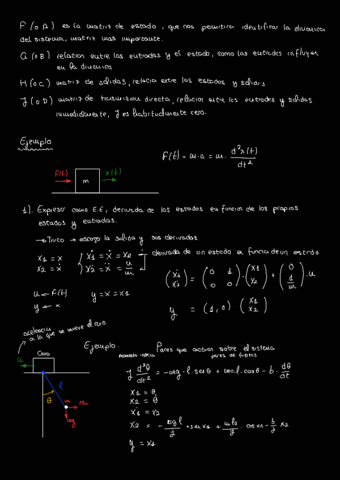 F (o A) es la matriz de estado, que nos permitirá identificar la dinámica
del sistema, matriz más importante.
G (o B) relación entre las entradas y el estado, como las entradas influyen
en la dinámica
H (o C) matriz de salidas, relación entre los estados y salidas
J (o D) matriz de transmisión directa, relación entre las entradas y salidas
inmediatamente, J es habitualmente cero.
Ejemplo
F(t) = m·a = m· d²x(t)/dt²
F(t) m x(t)
1). Expresar como E.E, derivada de los estados en función de los propios
estados y entradas.
→ Truco → escojo la salida y sus derivadas
x1 = x ẋ1 = ẋ = x2 derivada de un estado en función de un estado
x2 = ẋ ẋ2 = ẍ = u/m
(ẋ1 ẋ2) = (0 1 0 0) · (x1 x2) + (0 1/m) · u
u ← F(t) y = x = x1
y ← x
y = (1, 0) (x1 x2)
aceleración
a la que se mueve el carro
Carro
Ejemplo. Pares que actúan sobre el sistema
u
J d²θ/dt² = -mg·l·senθ + mu·l·cosθ - b· dθ/dt
l
θ
m
Mu
mg
x1 = θ
x2 = θ̇
ẋ1 = x2
ẋ2 = - mgl/J · senx1 + mlu/J · cosx1 - b/J x2
y = x1